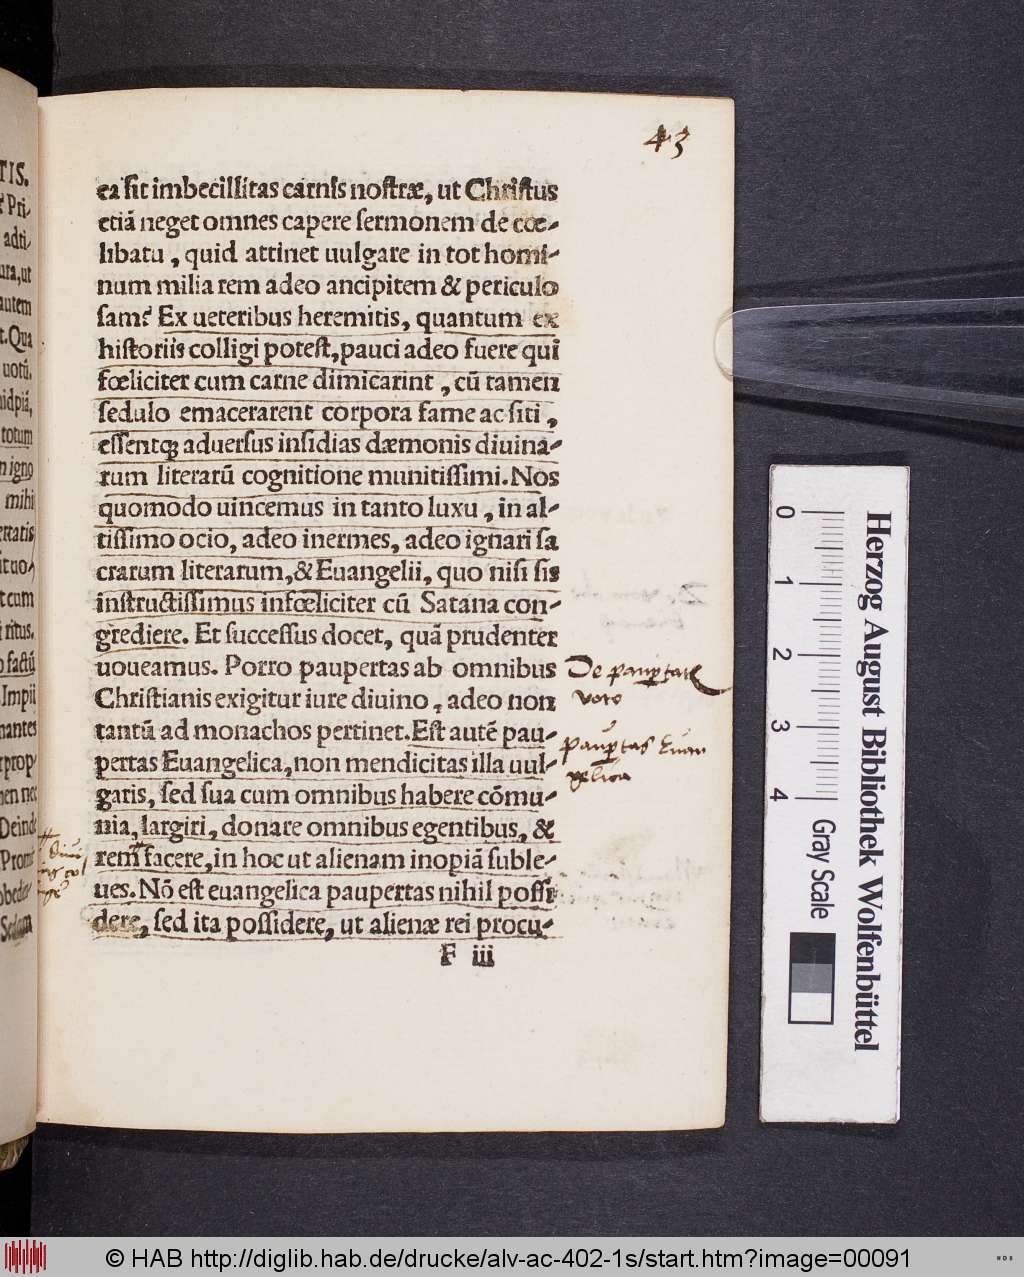 43
ea sit imbecillitas carnis nostræ, ut Christus
etiā neget omnes capere sermonem de cœ-
libatu, quid attinet uulgare in tot homi-
num milia rem adeo ancipitem & periculo
sam? Ex ueteribus heremitis, quantum ex
historiis colligi potest, pauci adeo fuere qui
fœliciter cum carne dimicarint, cū tamen
sedulo emacerarent corpora fame ac siti,
essentq; aduersus insidias dæmonis diuina-
rum literarū cognitione munitissimi. Nos
quomodo uincemus in tanto luxu, in al-
tissimo ocio, adeo inermes, adeo ignari sa
crarum literarum, & Euangelii, quo nisi sis
instructissimus infœliciter cū Satana con-
grediere. Et successus docet, quā prudenter
uoueamus. Porro paupertas ab omnibus
Christianis exigitur iure diuino, adeo non
tantū ad monachos pertinet. Est autē pau-
pertas Euangelica, non mendicitas illa uul-
garis, sed sua cum omnibus habere cōmu-
nia, largiri, donare omnibus egentibus, &
rem facere, in hoc ut alienam inopiā suble-
ues. Nō est euangelica paupertas nihil possi
dere, sed ita possidere, ut alienæ rei procu-
F iii
De paupertate
voto
paupertas Euan
gelica
TIS.
Pri-
adti-
ura, ut
autem
t. Qua
uotū.
uidpiā,
totum
n igno
mihi
ertatis
it uo-
t cum
ritus.
factū
Impii
nantes
prop-
nen nec
Deinde
Prom
obedi
0 1 2 3 4
Gray Scale
Herzog August Bibliothek Wolfenbüttel
© HAB http://diglib.hab.de/drucke/alv-ac-402-1s/start.htm?image=00091